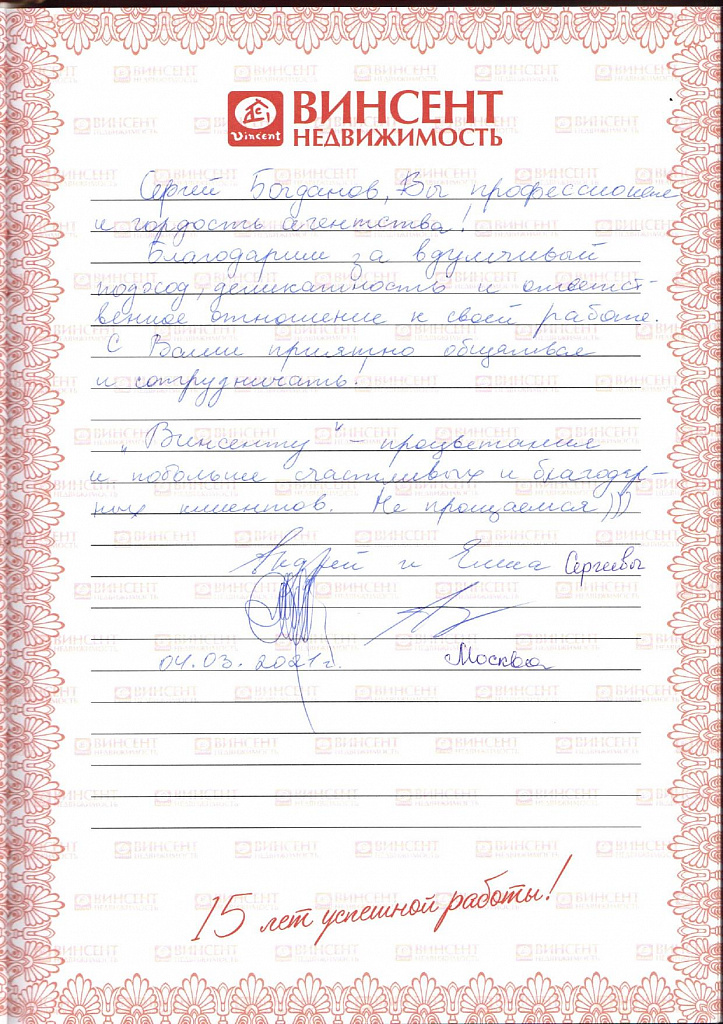 Vincent
ВИНСЕНТ
НЕДВИЖИМОСТЬ
Сергей Богданов, Вы профессионал
и гордость агентства!
Благодарим за вдумчивый
подход, деликатность и ответст-
венное отношение к своей работе.
С Вами приятно общаться
и сотрудничать.
„Винсенту" – процветания
и побольше счастливых и благодар-
ных клиентов. Не прощаемся)))
Андрей и Елена Сергеевы
04.03.2021г. Москва
15 лет успешной работы!